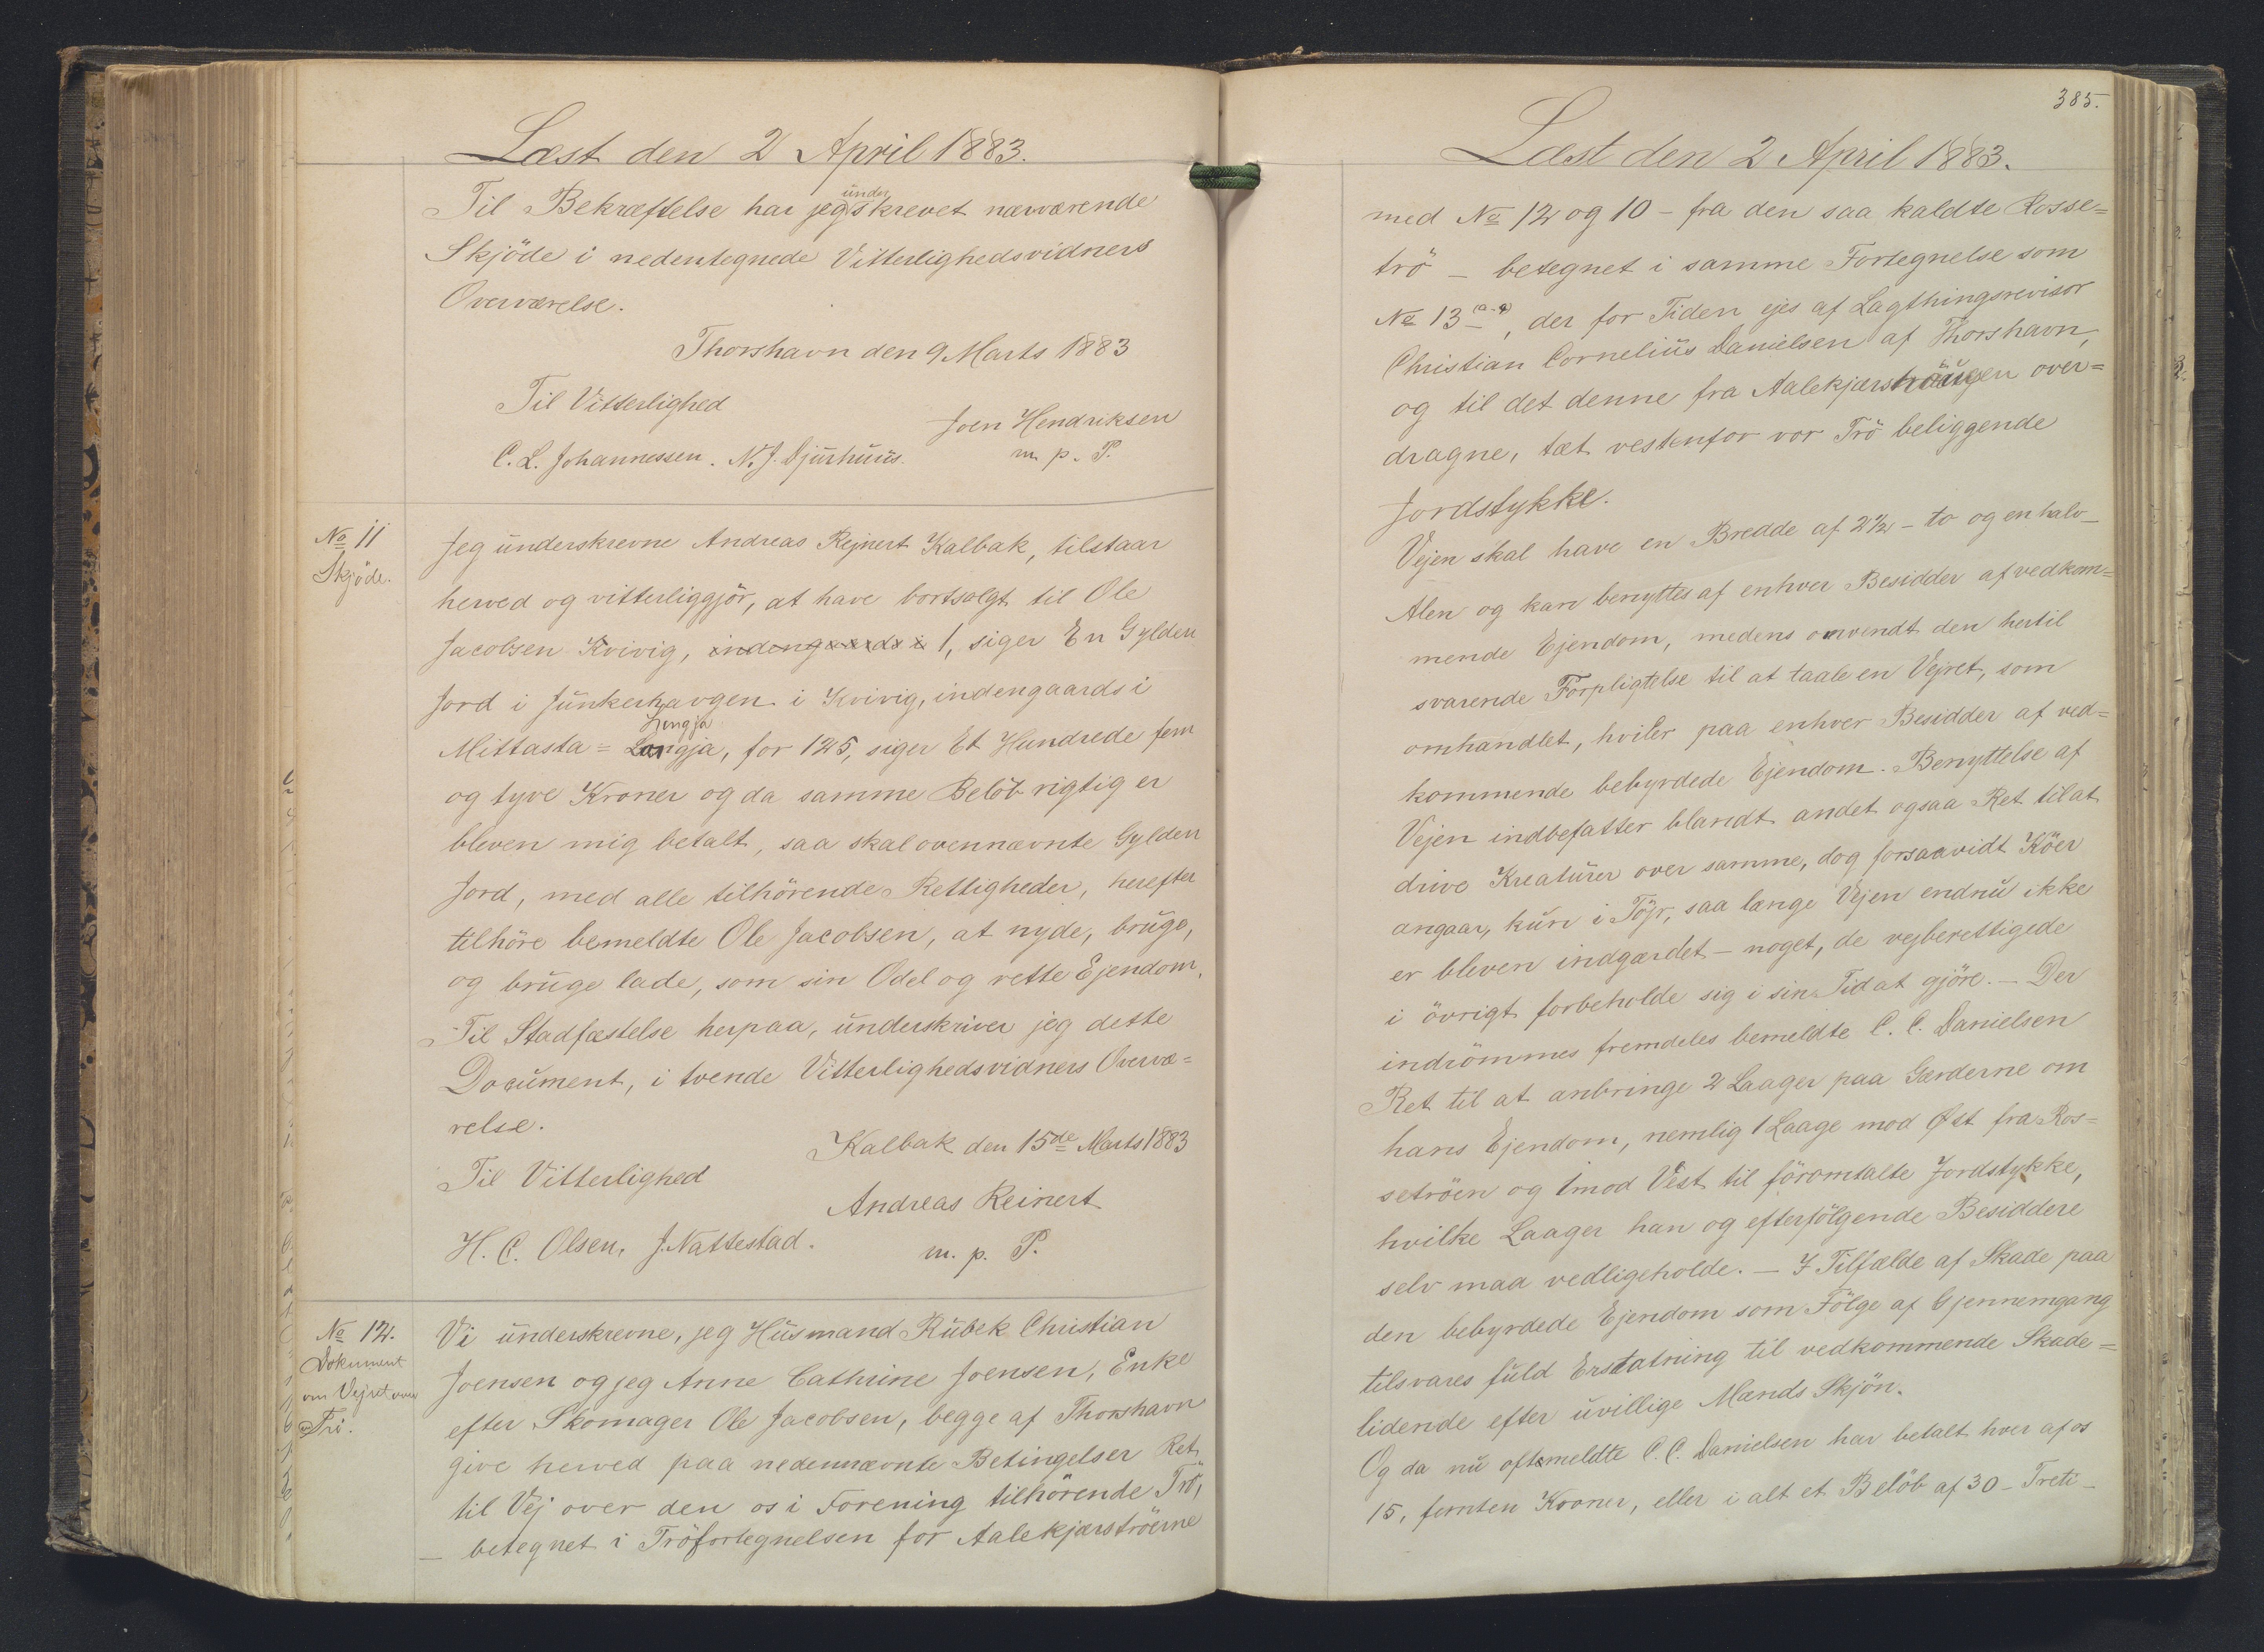 Læst den 2 April 1883.
Til Bekræftelse har jeg underskrevet nærværende
Skjöde i nedentegnede Vitterlighedsvidners
Overværelse.
Thorshavn den 9 Marts 1883
Til Vitterlighed
Joen Hendriksen
C. L. Johannessen. N. J. Djurhuus.
m. p. P.
No 11
Skjöde.
Jeg underskrevne Andreas Rejnert Kalbak, tilstaar
herved og vitterliggjör, at have bortsolgt til Ole
Jacobsen Kvivig, indengaards i 1, siger En Gylden
Jord i Junkerhavgen i Kvivig, indengaards i
Lengja
Mittasta = Langja, for 125, siger Et Hundrede fem
og tyve Kroner og da samme Belöb rigtig er
bleven mig betalt, saa skal ovennævnte Gylden
Jord, med alle tilhörende Rettigheder, herefter
tilhöre bemeldte Ole Jacobsen, at nyde, bruge,
og bruge lade, som sin Odel og rette Ejendom.
Til Stadfæstelse herpaa, underskriver jeg dette
Document, i tvende Vitterlighedsvidners Overvæ=
relse.
Kalbak den 15de Marts 1883
Til Vitterlighed
Andreas Reinert
H. C. Olsen, J. Nattestad.
m. p. P.
No 12.
Dokument
om Vejret over
Trö.
Vi underskrevne, jeg Husmand Rubek Christian
Joensen og jeg Anne Cathrine Joensen, Enke
efter Skomager Ole Jacobsen, begge af Thorshavn
give herved paa nedennævnte Betingelser Ret
til Vej over den os i Forening tilhörende Trö,
— betegnet i Tröfortegnelsen for Aalekjærströerne
385.
Læst den 2 April 1883.
med No 12 og 10 – fra den saa kaldte Rosse=
trö – betegnet i samme Fortegnelse som
No 13, der for Tiden ejes af Lagthingsrevisor
Christian Cornelius Danielsen af Thorshavn,
og til det denne fra Aalekjærshäugen over=
dragne, tæt vestenfor vor Trö beliggende
Jordstykke.
Vejen skal have en Bredde af 2½ – to og en halv –
Alen og kan benyttes af enhver Besidder af vedkom=
mende Ejendom, medens omvendt den hertil
svarende Forpligtelse til at taale en Vejret, som
omhandlet, hviler paa enhver Besidder af ved=
kommende bebyrdede Ejendom. Benyttelse af
Vejen indbefatter blandt andet ogsaa Ret til at
drive Kreaturer over samme, dog forsaavidt Köer
angaar, kun i Töjr, saa længe Vejen endnu ikke
er bleven indgærdet – noget, de vejberettigede
i övrigt forbeholde sig i sin Tid at gjöre. — Der
indrömmes fremdeles bemeldte C. C. Danielsen
Ret til at anbringe 2 Laager paa Gærderne om
hans Ejendom, nemlig 1 Laage mod Øst fra Ros=
setröen og 1 mod Vest til föromtalte Jordstykke,
hvilke Laager han og efterfölgende Besiddere
selv maa vedligeholde. — I Tilfælde af Skade paa
den bebyrdede Ejendom som Fölge af Gjennemgang
tilsvares fuld Erstatning til vedkommende Skade=
lidende efter uvillige Mænds Skjön.
Og da nu oftmeldte C. C. Danielsen har betalt hver af os
15, femten Kroner, eller i alt et Belöb af 30 – Treti –